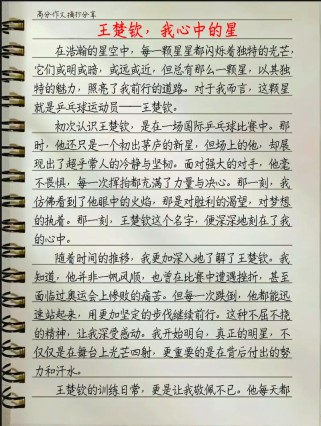 高分作文摘抄分享
王楚钦，我心中的星
在浩瀚的星空中，每一颗星星都闪烁着独特的光芒，
它们或明或暗，或远或近，但总有那么一颗星，以其独
特的魅力，照亮了我前行的道路。对于我而言，这颗星
就是乒乓球运动员——王楚钦。
初次认识王楚钦，是在一场国际乒乓球比赛中。那
时，他还只是一个初出茅庐的新星，但场上的他，却展
现出了超乎常人的冷静与坚韧。面对强大的对手，他毫
不畏惧，每一次挥拍都充满了力量与决心。那一刻，我
仿佛看到了他眼中的火焰，那是对胜利的渴望，对梦想
的执着。那一刻，王楚钦这个名字，便深深地刻在了我
的心中。
随着时间的推移，我更加深入地了解了王楚钦。我
知道，他并非一帆风顺，也曾在比赛中遭遇挫折，甚至
面临过奥运会上惨败的痛苦。但每一次跌倒，他都能迅
速站起来，用更加坚定的步伐继续前行。这种不屈不挠
的精神，让我深受感动。我开始明白，真正的明星，不
仅仅是在舞台上光芒四射，更重要的是在背后付出的努
力和汗水。
王楚钦的训练日常，更是让我敬佩不已。他每天都